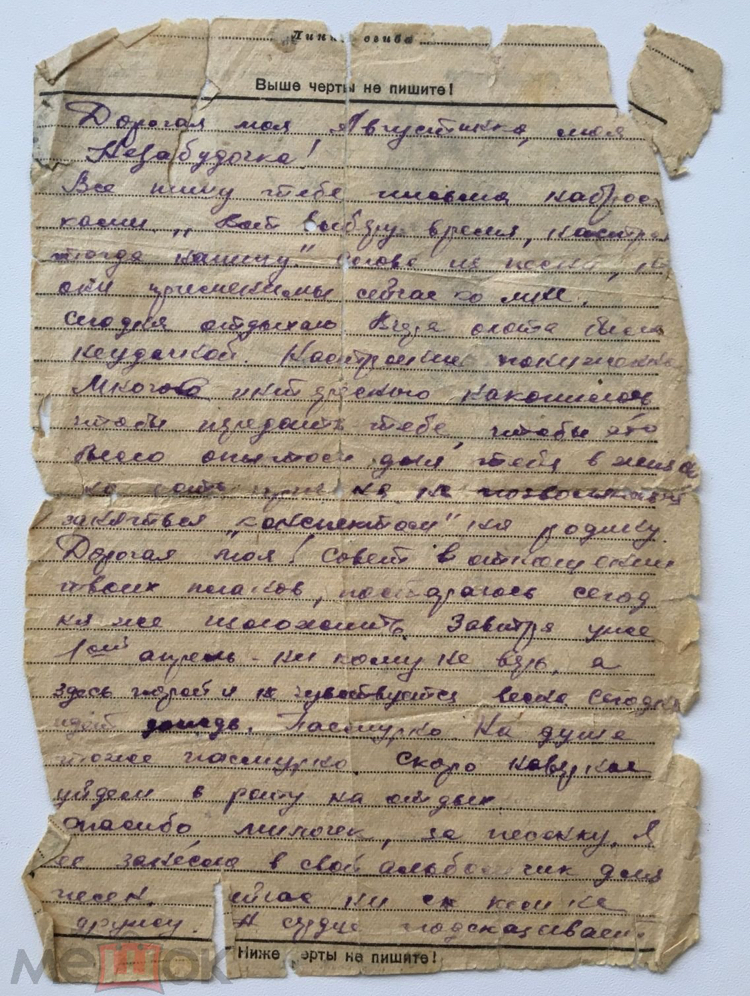 Линия огиба
Выше черты не пишите!
Дорогая моя Августинка, моя
Незабудочка!
Все пишу тебе письма наброс
ками „Вот выберу время,
тогда напишу." Слова из песни,
они применимы сейчас ко мне.
Сегодня отдыхаю Вчера охота была
неудачной. Настроение понижен
Много интересного накопилось
чтобы передать тебе, чтобы это
было опытом для тебя в
не позволяют
заняться „конспектом" на родину.
Дорогая моя! Совет в отношении
твоих планов, постараюсь сегод
ня же изложить. Завтра уже
1ое апрель - ни кому не верь, а
здесь порой и не чувствуется весна Сегодня
идет дождь. Пасмурно. На душе
тоже пасмурно. Скоро наверное
уйдем в роту на отдых.
Спасибо, милочек, за песенку. Я
ее занесла в свой альбомчик для
песен. ни с кем не
дружу. сердце подсказывает.
Ниже черты не пишите!
мешок